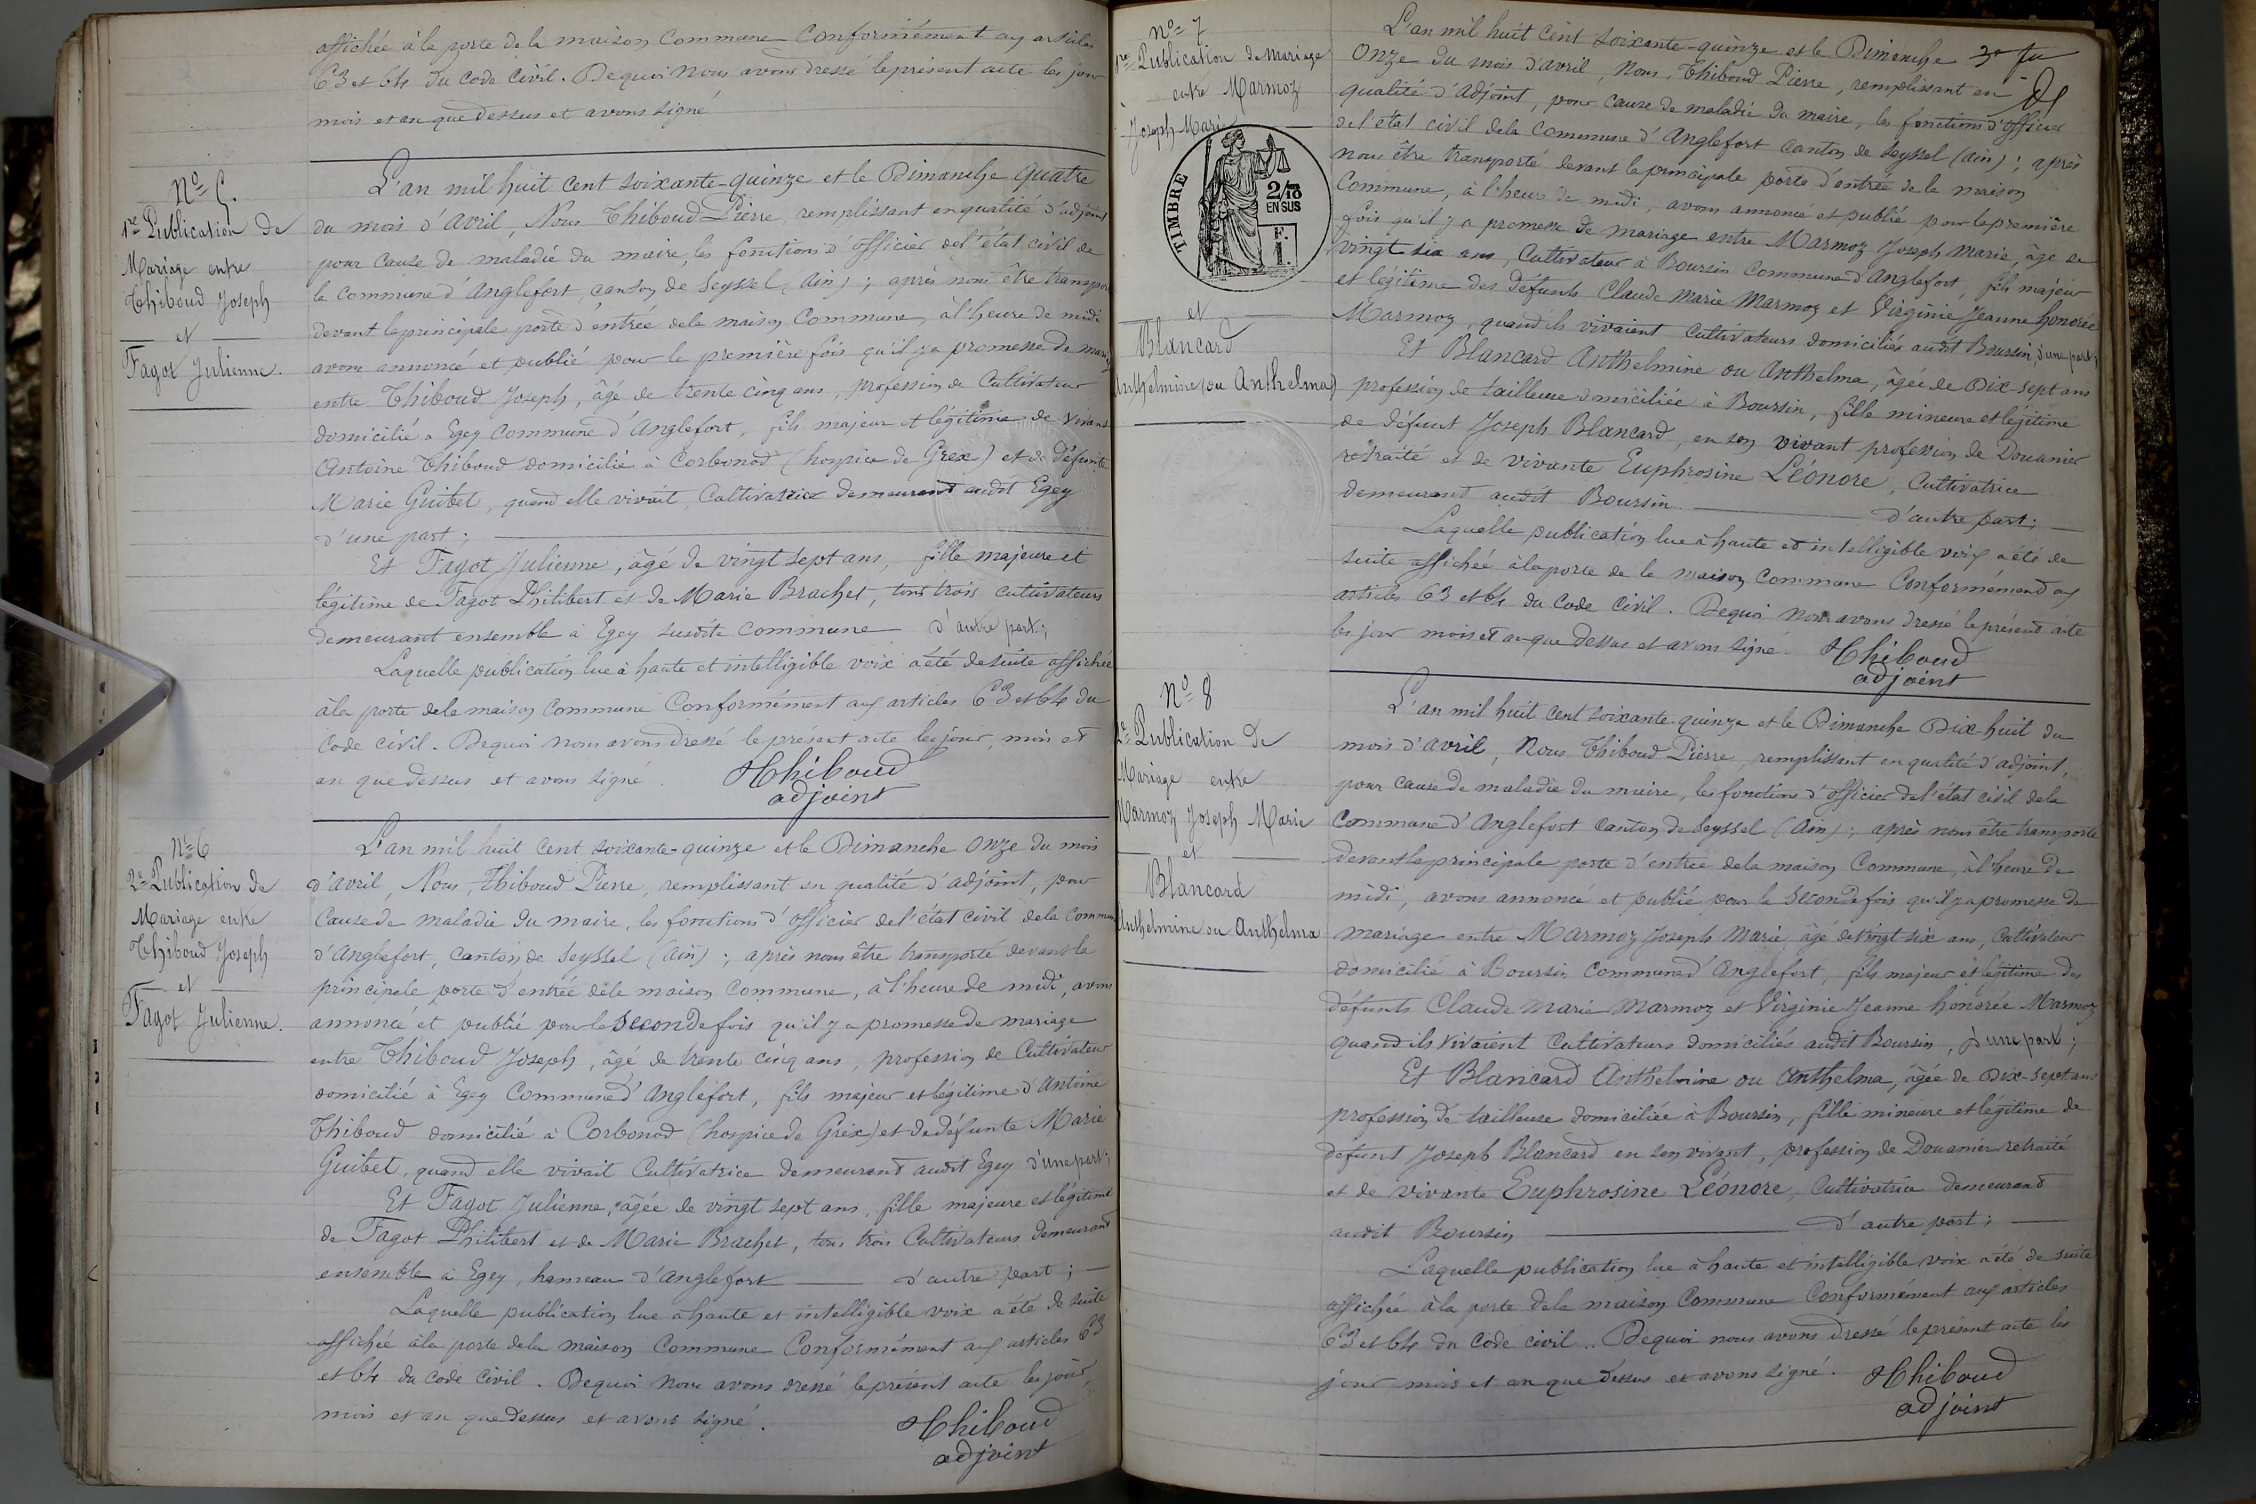 affichée à la porte de la maison Commune Conformément aux articles
63 et 64 du Code Civil. De quoi Nous avons dressé le présent acte les jour
mois et an que dessus et avons signé
No 5.
1re Publication de
Mariage entre
Thiboud Joseph
et
Fagot Julienne.
L'an mil huit Cent soixante-quinze et le Dimanche quatre
du mois d'avril, Nous Thiboud Pierre, remplissant en qualité d'adjoint
pour Cause de maladie du maire, les fonctions d'officier de l'état civil de
la Commune d'Anglefort, canton de Seyssel (Ain); après nous être transporté
devant la principale porte d'entrée de la maison Commune, à l'heure de midi
avons annoncé et publié pour la première fois qu'il y a promesse de mariage
entre Thiboud Joseph, âgé de trente cinq ans, profession de Cultivateur
domicilié à Egey Commune d'Anglefort, fils majeur et légitime de vivant
Antoine Thiboud domicilié à Corbonod (hospice de Grex) et de défunte
Marie Guibet, quand elle vivait, Cultivatrice demeurant audit Egey
d'une part;
Et Fagot Julienne, âgé de vingt sept ans, fille majeure et
légitime de Fagot Philibert et de Marie Brachet, tous trois cultivateurs
demeurant ensemble à Egey susdite commune d'autre part;
Laquelle publication lue à haute et intelligible voix a été de suite affichée
à la porte de la maison Commune Conformément aux articles 63 et 64 du
Code Civil. De quoi nous avons dressé le présent acte les jour, mois et
an que dessus et avons signé. Thiboud
adjoint
No 6
2e Publication de
Mariage entre
Thiboud Joseph
et
Fagot Julienne.
L'an mil huit Cent soixante-quinze et le Dimanche onze du mois
d'avril, Nous, Thiboud Pierre, remplissant en qualité d'adjoint, pour
Cause de maladie du maire, les fonctions d'officier de l'état civil de la Commune
d'Anglefort, Canton de Seyssel (Ain); après nous être transporté devant la
principale porte d'entrée de la maison Commune, à l'heure de midi, avons
annoncé et publié pour la Seconde fois qu'il y a promesse de mariage
entre Thiboud Joseph, âgé de trente cinq ans, profession de Cultivateur
domicilié à Egey Commune d'Anglefort, fils majeur et légitime d'Antoine
Thiboud domicilié à Corbonod (hospice de Grex) et de défunte Marie
Guibet, quand elle vivait Cultivatrice demeurant audit Egey d'une part;
Et Fagot Julienne, âgée de vingt sept ans, fille majeure et légitime
de Fagot Philibert et de Marie Brachet, tous trois Cultivateurs demeurant
ensemble à Egey, hameau d'Anglefort d'autre part;
Laquelle publication lue à haute et intelligible voix a été de suite
affichée à la porte de la maison Commune Conformément aux articles 63
et 64 du Code Civil. De quoi Nous avons dressé le présent acte les jour,
mois et an que dessus et avons signé.
Thiboud
adjoint
No 7
1re Publication de Mariage
entre Marmoz
Joseph Marie
TIMBRE
2/10
EN SUS
F.
1.
et
Blancard
Anthelmine (ou Anthelma)
L'an mil huit Cent soixante-quinze et le Dimanche 3e
Onze du mois d'avril, Nous, Thiboud Pierre, remplissant en
qualité d'adjoint, pour Cause de maladie du maire, les fonctions d'officier
de l'état civil de la Commune d'Anglefort Canton de Seyssel (Ain); après
nous être transporté devant la principale porte d'entrée de la maison
Commune, à l'heure de midi, avons annoncé et publié pour la première
fois qu'il y a promesse de mariage entre Marmoz Joseph Marie, âgé de
vingt six ans, Cultivateur à Boursin Commune d'Anglefort, fils majeur
et légitime des défunts Claude Marie Marmoz et Virginie Jeanne honorée
Marmoz, quand ils vivaient Cultivateurs domiciliés audit Boursin, d'une part;
Et Blancard Anthelmine ou Anthelma, âgée de Dix sept ans
profession de tailleuse domiciliée à Boursin, fille mineure et légitime
de défunt Joseph Blancard, en son vivant profession de Douanier
retraité et de vivante Euphrosine Léonore, Cultivatrice
demeurant audit Boursin d'autre part;
Laquelle publication lue à haute et intelligible voix a été de
suite affichée à la porte de la maison Commune Conformément aux
articles 63 et 64 du Code Civil. De quoi Nous avons dressé le présent acte
les jour mois et an que dessus et avons signé. Thiboud
adjoint
No 8
2e Publication de
Mariage entre
Marmoz Joseph Marie
et
Blancard
Anthelmine ou Anthelma
L'an mil huit Cent soixante-quinze et le Dimanche Dix-huit du
mois d'avril, Nous Thiboud Pierre, remplissant en qualité d'adjoint,
pour cause de maladie du maire, les fonctions d'officier de l'état civil de la
Commune d'Anglefort Canton de Seyssel (Ain); après nous être transporté
devant la principale porte d'entrée de la maison Commune, à l'heure de
midi, avons annoncé et publié pour la Seconde fois qu'il y a promesse de
mariage entre Marmoz Joseph Marie, âgé de vingt six ans, Cultivateur
domicilié à Boursin Commune d'Anglefort, fils majeur et légitime des
défunts Claude Marie Marmoz et Virginie Jeanne honorée Marmoz
quand ils vivaient Cultivateurs domiciliés audit Boursin, d'une part;
Et Blancard Anthelmine ou Anthelma, âgée de Dix-sept ans
profession de tailleuse domiciliée à Boursin, fille mineure et légitime de
défunt Joseph Blancard en son vivant, profession de Douanier retraité
et de vivante Euphrosine Léonore, Cultivatrice demeurant
audit Boursin d'autre part;
Laquelle publication lue à haute et intelligible voix a été de suite
affichée à la porte de la maison Commune Conformément aux articles
63 et 64 du Code Civil.. De quoi nous avons dressé le présent acte les
jour mois et an que dessus et avons signé. Thiboud
adjoint